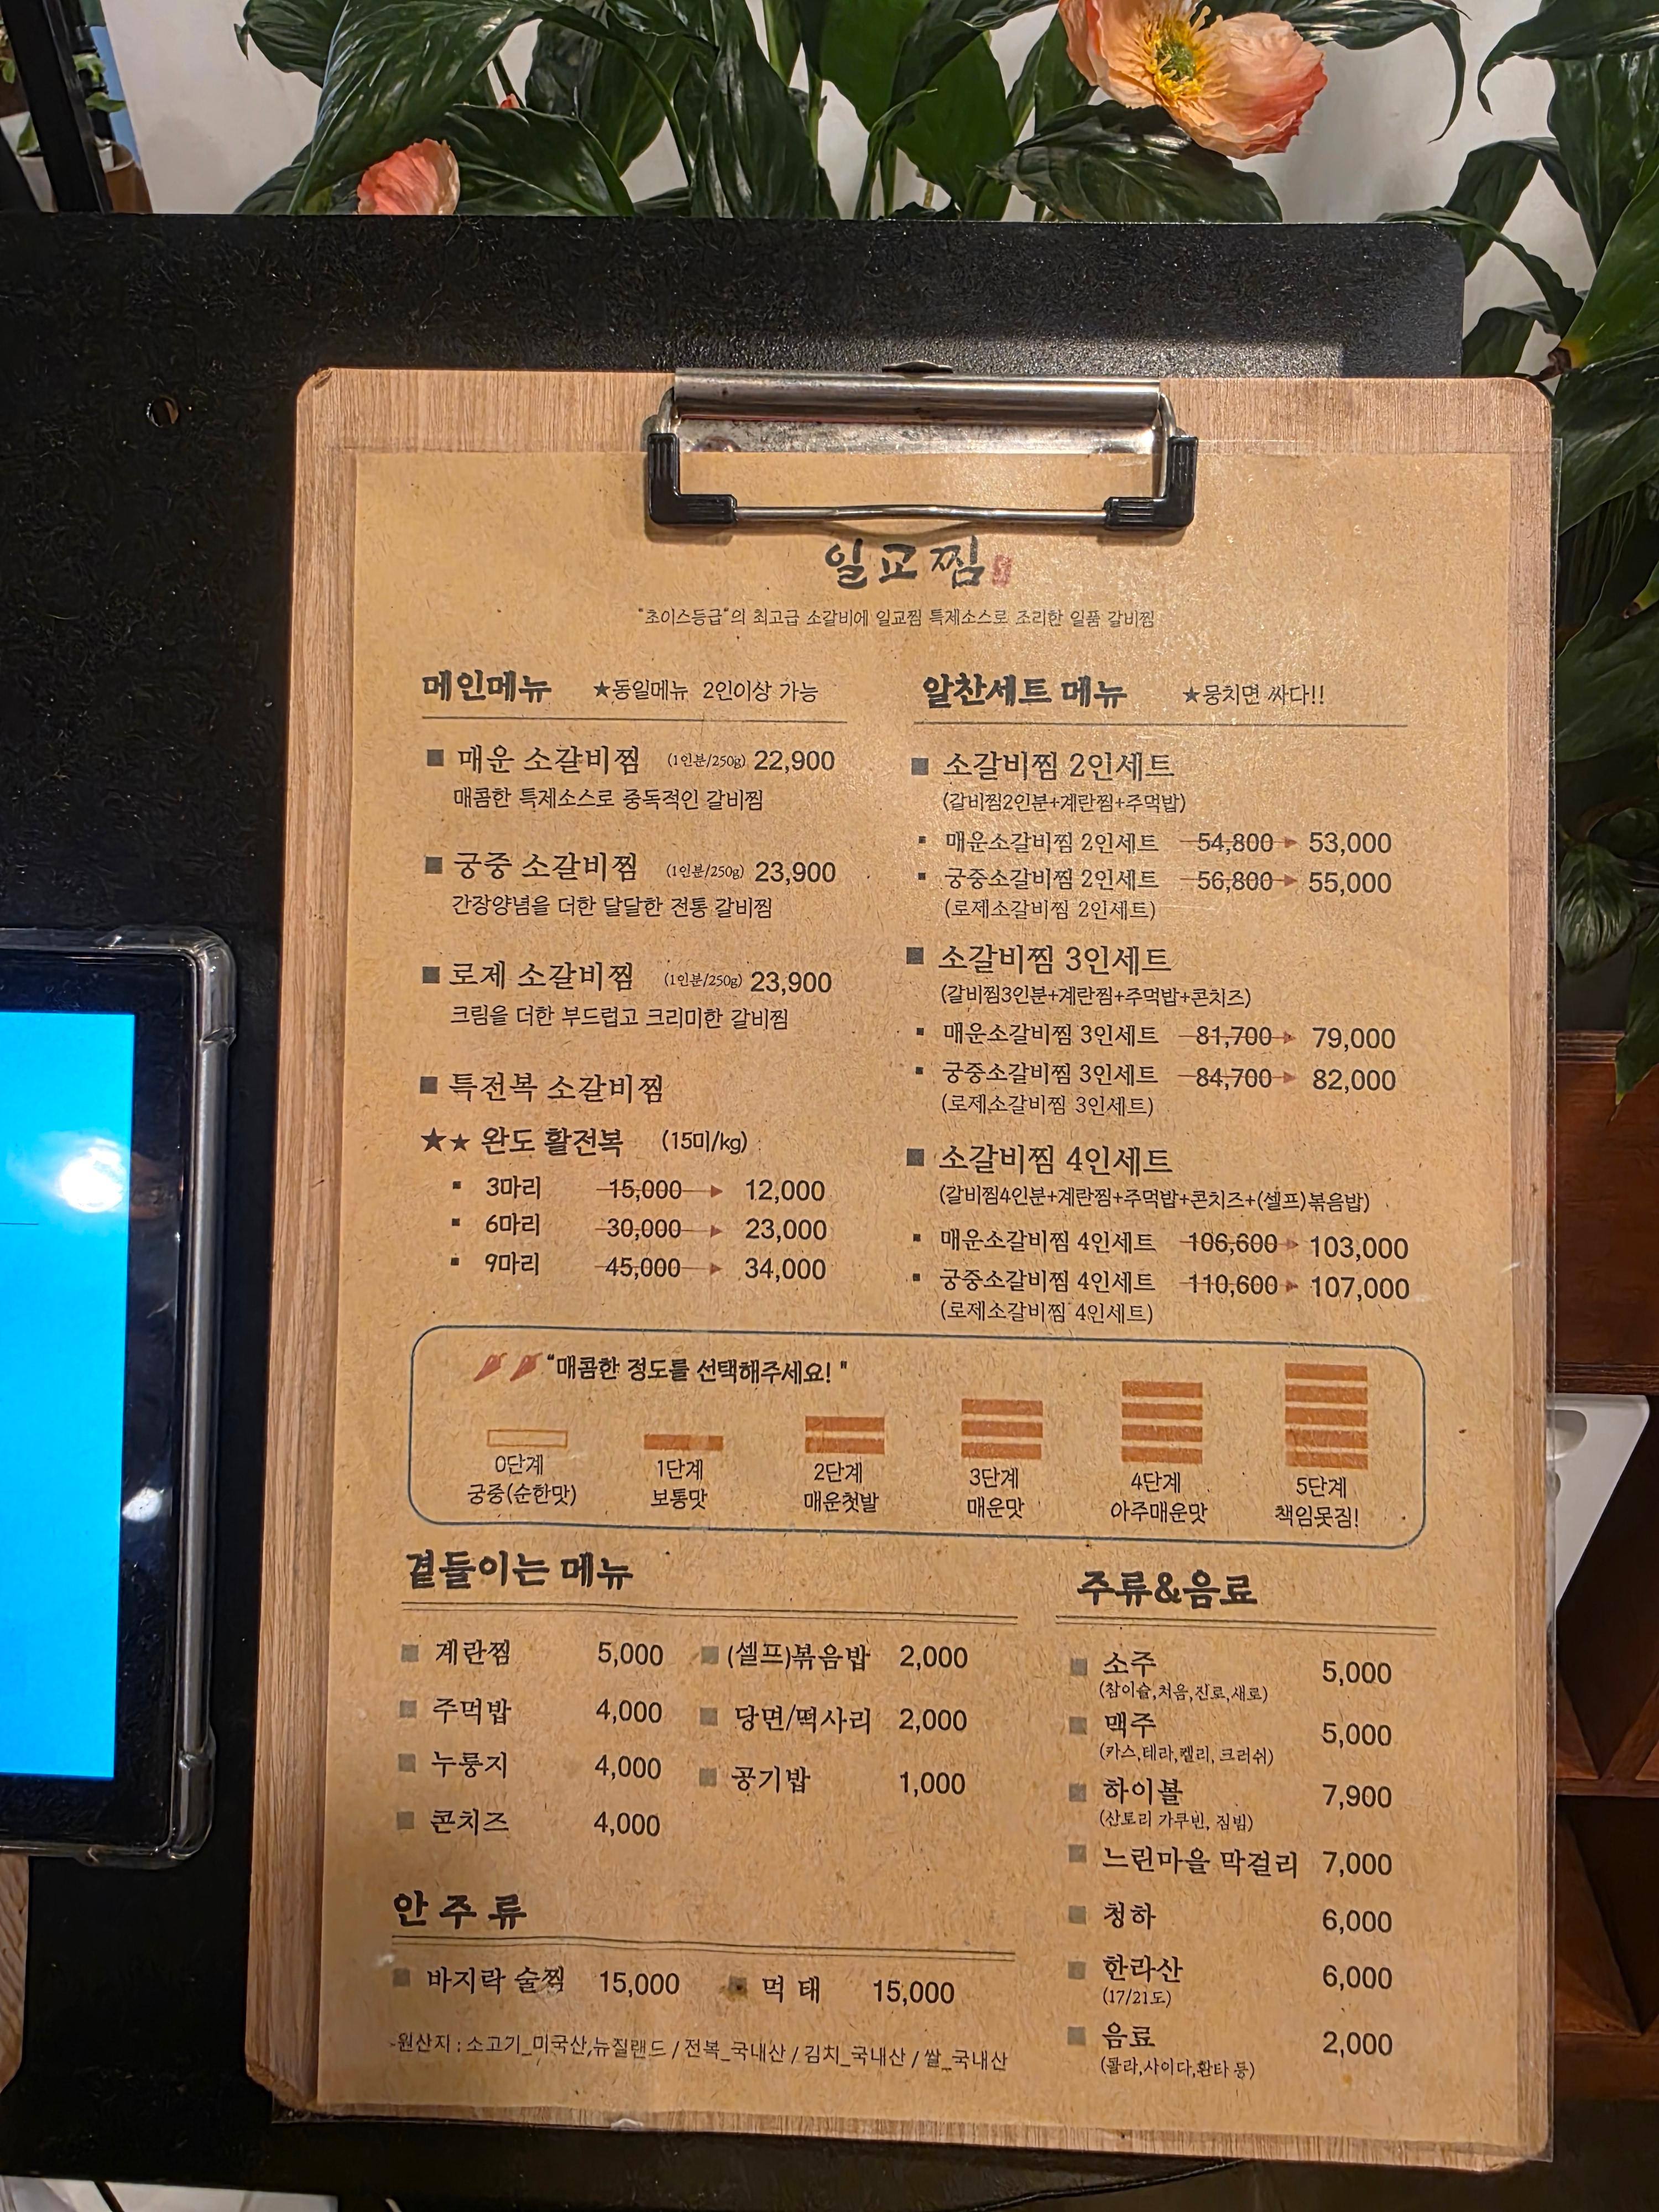 일교찜
"초이스등급"의 최고급 소갈비에 일교찜 특제소스로 조리한 일품 갈비찜
메인메뉴 ★동일메뉴 2인이상 가능
■ 매운 소갈비찜 (1인분/250g) 22,900
매콤한 특제소스로 중독적인 갈비찜
■ 궁중 소갈비찜 (1인분/250g) 23,900
간장양념을 더한 달달한 전통 갈비찜
■ 로제 소갈비찜 (1인분/250g) 23,900
크림을 더한 부드럽고 크리미한 갈비찜
■ 특전복 소갈비찜
★★ 완도 활전복 (15미/kg)
▪ 3마리 15,000 → 12,000
▪ 6마리 30,000 → 23,000
▪ 9마리 45,000 → 34,000
알찬세트 메뉴 ★뭉치면 싸다!!
■ 소갈비찜 2인세트
(갈비찜2인분+계란찜+주먹밥)
▪ 매운소갈비찜 2인세트 54,800 → 53,000
▪ 궁중소갈비찜 2인세트 56,800 → 55,000
(로제소갈비찜 2인세트)
■ 소갈비찜 3인세트
(갈비찜3인분+계란찜+주먹밥+콘치즈)
▪ 매운소갈비찜 3인세트 81,700 → 79,000
▪ 궁중소갈비찜 3인세트 84,700 → 82,000
(로제소갈비찜 3인세트)
■ 소갈비찜 4인세트
(갈비찜4인분+계란찜+주먹밥+콘치즈+(셀프)볶음밥)
▪ 매운소갈비찜 4인세트 106,600 → 103,000
▪ 궁중소갈비찜 4인세트 110,600 → 107,000
(로제소갈비찜 4인세트)
"매콤한 정도를 선택해주세요! "
0단계 1단계 2단계 3단계 4단계 5단계
궁중(순한맛) 보통맛 매운첫발 매운맛 아주매운맛 책임못짐!
곁들이는 메뉴
■ 계란찜 5,000 ■ (셀프)볶음밥 2,000
■ 주먹밥 4,000 ■ 당면/떡사리 2,000
■ 누룽지 4,000 ■ 공기밥 1,000
■ 콘치즈 4,000
안 주 류
■ 바지락 술찜 15,000 ■ 먹 태 15,000
-원산지 : 소고기_미국산,뉴질랜드 / 전복_국내산 / 김치_국내산 / 쌀_국내산
주류&음료
■ 소주 5,000
(참이슬,처음,진로,새로)
■ 맥주 5,000
(카스,테라,켈리, 크러쉬)
■ 하이볼 7,900
(산토리 가쿠빈, 짐빔)
■ 느린마을 막걸리 7,000
■ 청하 6,000
■ 한라산 6,000
(17/21도)
■ 음료 2,000
(콜라,사이다,환타 등)